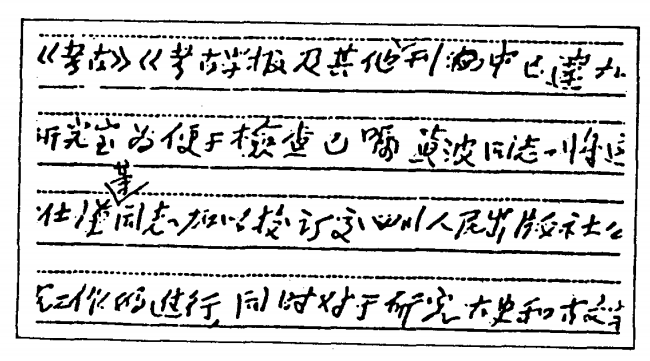 《考古》《考古学报及其他刊物中已选九
研究室为便于检查已嘱黄波同志一将这
仕谨某同志加以校订交四川人民出版社公
究工作的进行,同时对于研究太史和古文字